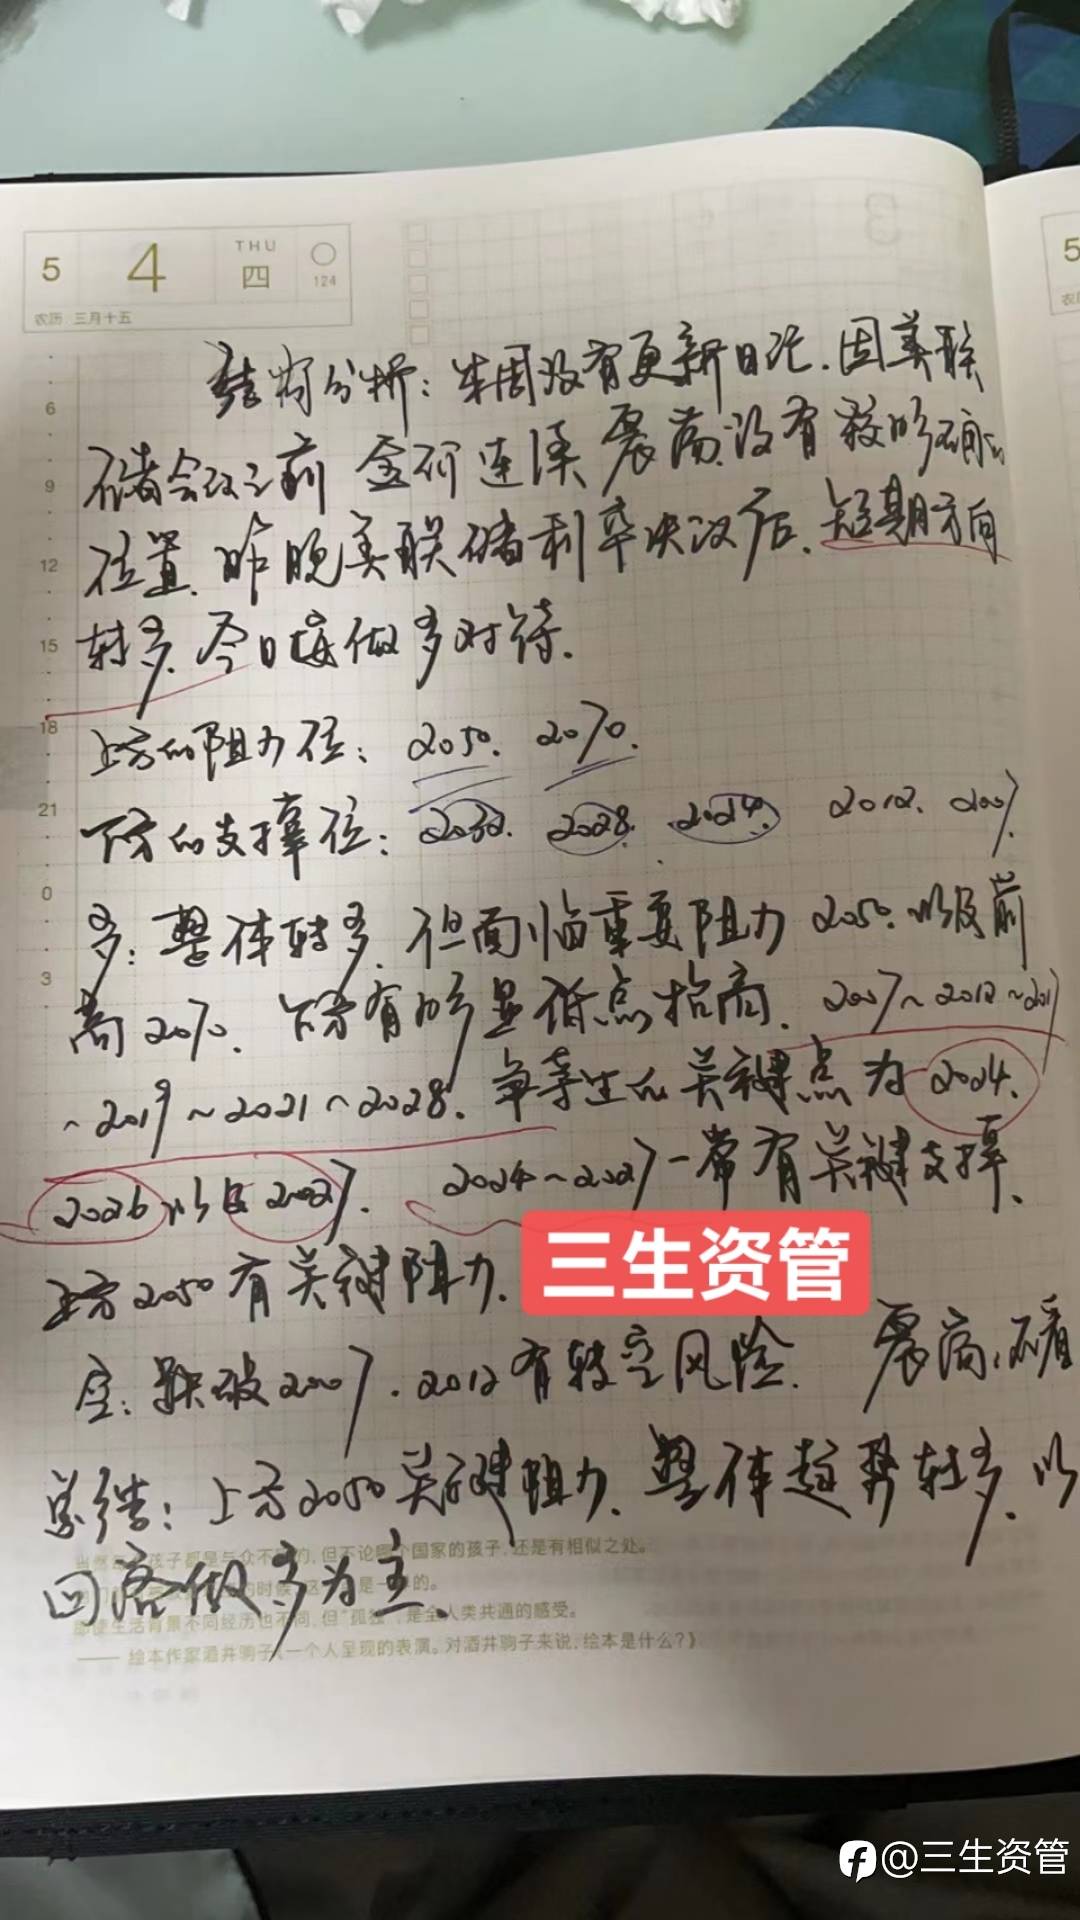 5 4 THU 四 124
农历 三月十五
结构分析：本周没有更新日记.因美联
储会议之前 金价连续震荡.没有较明确的
位置.昨晚美联储利率决议后.短期方向
转多.今日接做多对待.
上方的阻力位：2050. 2070.
下方的支撑位：2032. 2028. 2024. 2012. 2007.
多：整体转多.但面临重要阻力2050.以及前
高2070. 下方有明显低点抬高. 2007~2012~2017
~2019~2021~2028. 的关键点为2024.
2026以及2027. 2024~2027一带有关键支撑.
上方2050有关键阻力.
三生资管
空：跌破2007.2012有转空风险. 震荡：
总结：上方2050关键阻力.整体趋势转多.以
回落做多为主.
6
9
12
15
18
21
0
3
孩子都是与众不同的,但不论哪个国家的孩子,还是有相似之处。
即使生活背景不同经历也不同,但"孤独",是全人类共通的感受。
—— 绘本作家酒井驹子《一个人呈现的表演。对酒井驹子来说,绘本是什么?》
5
@三生资管